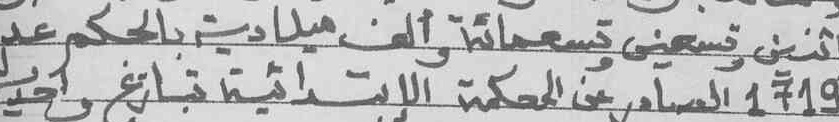 اثنين وتسعين وتسعمائة وألف ميلادية بالحكم عدد
1719 الصادر عن المحكمة الابتدائية بتاريخ واحد